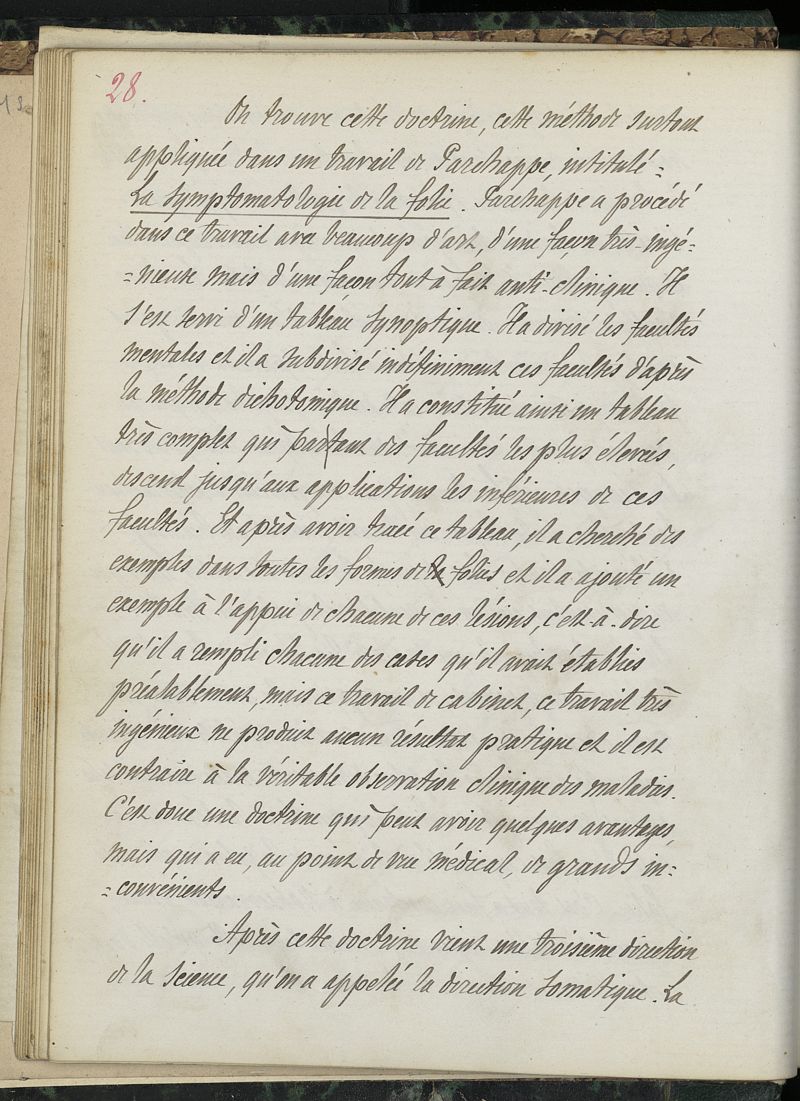 28.
On trouve cette doctrine, cette méthode surtout
appliquée dans un travail de Parchappe, intitulé =
La Symptomatologie de la folie. Parchappe a procédé
dans ce travail avec beaucoup d'art, d'une façon très-ingé=
=nieuse mais d'une façon tout à fait anti-clinique. Il
s'est servi d'un tableau synoptique. Il a divisé les facultés
mentales et il a subdivisé indéfiniment ces facultés d'après
la méthode dichotomique. Il a constitué ainsi un tableau
très complet qui partant des facultés les plus élevées,
descend jusqu'aux applications les inférieures de ces
facultés. Et après avoir tracé ce tableau, il a cherché des
exemples dans toutes les formes de folies et il a ajouté un
exemple à l'appui de chacune de ces lésions, c'est-à-dire
qu'il a rempli chacune des cases qu'il avait établies
préalablement, mais ce travail de cabinet, ce travail très
ingénieux ne produit aucun résultat pratique et il est
contraire à la véritable observation clinique des maladies.
C'est donc une doctrine qui peut avoir quelques avantages,
mais qui a eu, au point de vue médical, de grands in=
=convénients.
Après cette doctrine vient une troisième direction
de la Science, qu'on a appelée la direction Somatique. La